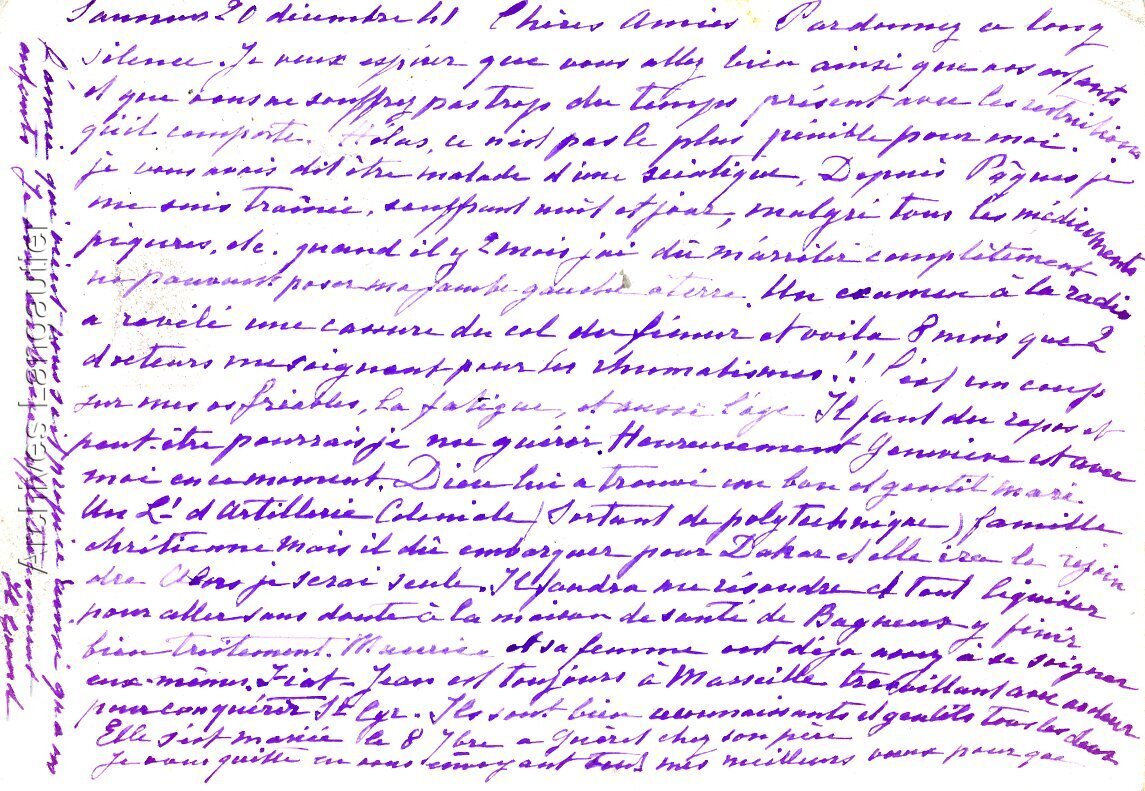 Saumur 20 décembre 41 Chères Amies Pardonnez ce long
silence. Je veux espérer que vous allez bien ainsi que vos enfants
et que vous ne souffrez pas trop du temps présent avec les restrictions
qu'il comporte. Hélas, ce n'est pas le plus pénible pour moi.
je vous avais dit être malade d'une sciatique, Depuis Pâques je
me suis trainée, souffrant nuit et jour, malgré tous les médicaments
piqures, etc. quand il y 2 mois j'ai dû m'arrêter complètement
ne pouvant poser ma jambe gauche à terre. Un examen à la radio
a révélé une cassure du col du fémur et voila 8 mois que 2
docteurs me soignent pour des rhumatismes!! C'est un coup
sur mes os friables, la fatigue, et aussi l'âge Il faut du repos et
peut-être pourrais je me guérir. Heureusement Geneviève est avec
moi en ce moment. Dieu lui a trouvé un bon et gentil mari.
Un Lt d'Artillerie Coloniale (Sortant de polytechnique) famille
chrétienne mais il dû embarquer pour Dakar et elle ira le rejoin
dre Alors je serai seule. Il faudra me résoudre et tout liquider
pour aller sans doute à la maison de santé de Bagneux y finir
bien tristement. Maurice et sa femme ont déja assez à se soigner
eux-mêmes. Fiat - Jean est toujours à Marseille travaillant avec ardeur
pour conquérir St Cyr. Ils sont bien reconnaissants et gentils tous les deux
Elle s'est mariée le 8 7bre a Guéret chez son père
Je vous quitte en vous envoyant tous mes meilleurs voeux pour que
l'année qui vient vous soit propice ainsi qu'à vos
enfants Je vous embrasse affectueusement